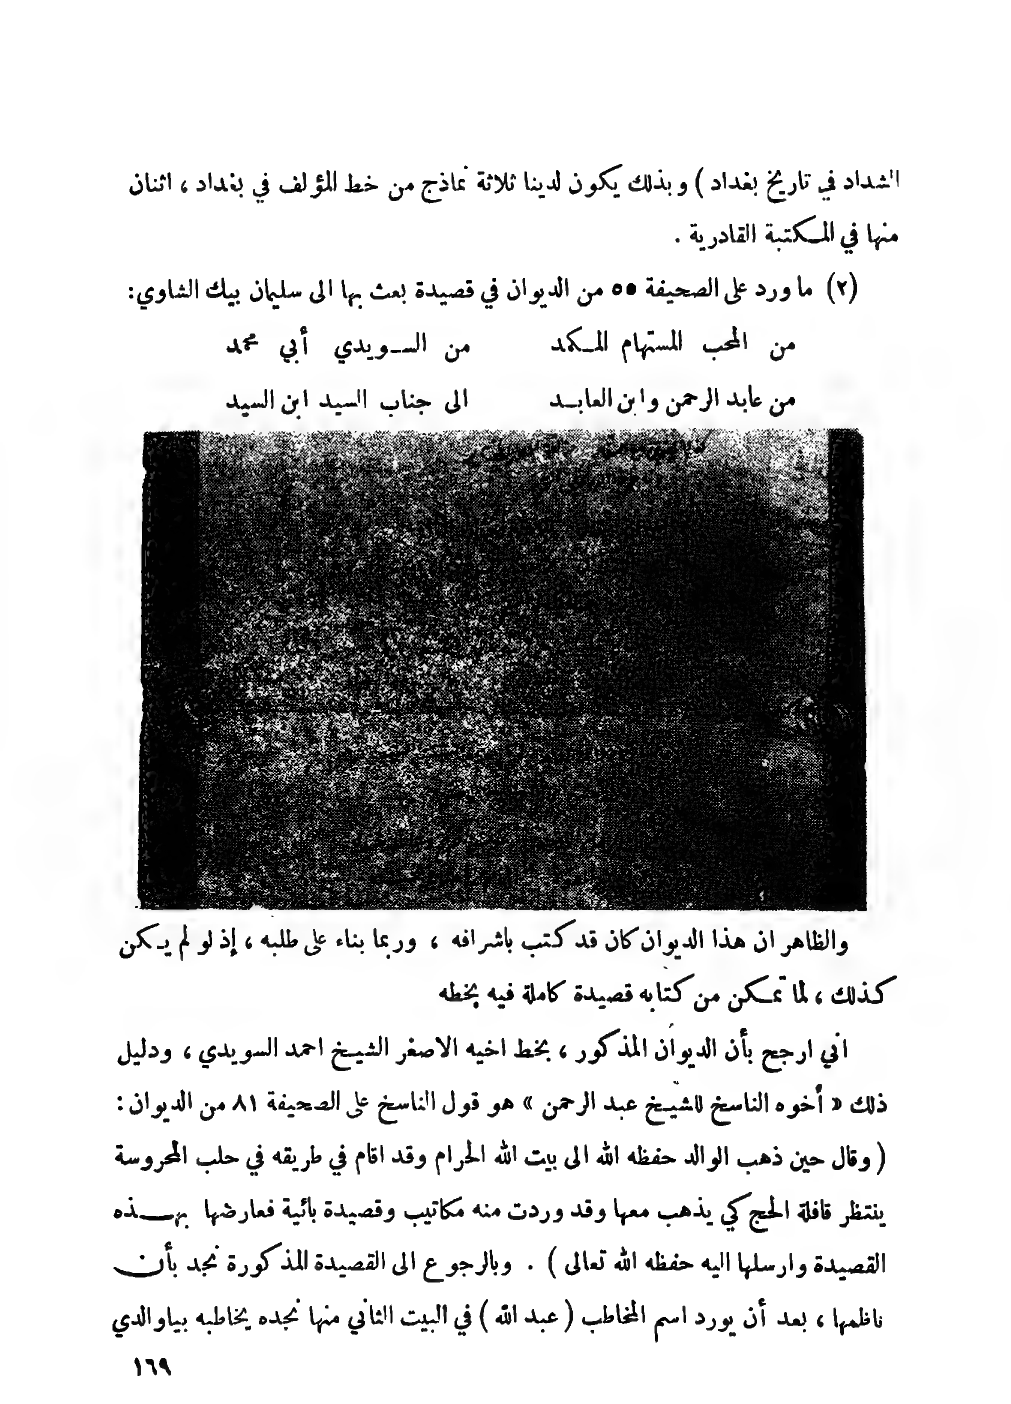 الشداد في تاريخ بغداد ) وبذلك يكون لدينا ثلاثة نماذج من خط المؤلف في بغداد ، اثنان
منها في المكتبة القادرية .
(٢) ما ورد على الصحيفة ٥٥ من الديوان في قصيدة بعث بها الى سليمان بيك الشاوي:
من المحب المستهام المكمد من السويدي أبي محمد
من عابد الرحمن وابن العابد الى جناب السيد ابن السيد
والظاهر ان هذا الديوان كان قد كتب باشرافه ، وربما بناء على طلبه ، إذ لو لم يكن
كذلك ، لما تمكن من كتابه قصيدة كاملة فيه بخطه
اني ارجح بأن الديوان المذكور ، بخط اخيه الاصغر الشيخ احمد السويدي ، ودليل
ذلك « أخوه الناسخ للشيخ عبد الرحمن » هو قول الناسخ على الصحيفة ٨١ من الديوان :
( وقال حين ذهب الوالد حفظه الله الى بيت الله الحرام وقد اقام في طريقه في حلب المحروسة
ينتظر قافلة الحج كي يذهب معها وقد وردت منه مكاتيب وقصيدة بائية فعارضها بهذه
القصيدة وارسلها اليه حفظه الله تعالى ) . وبالرجوع الى القصيدة المذكورة نجد بأن
ناظمها ، بعد أن يورد اسم المخاطب ( عبد الله ) في البيت الثاني منها نجده يخاطبه بياوالدي
١٦٩